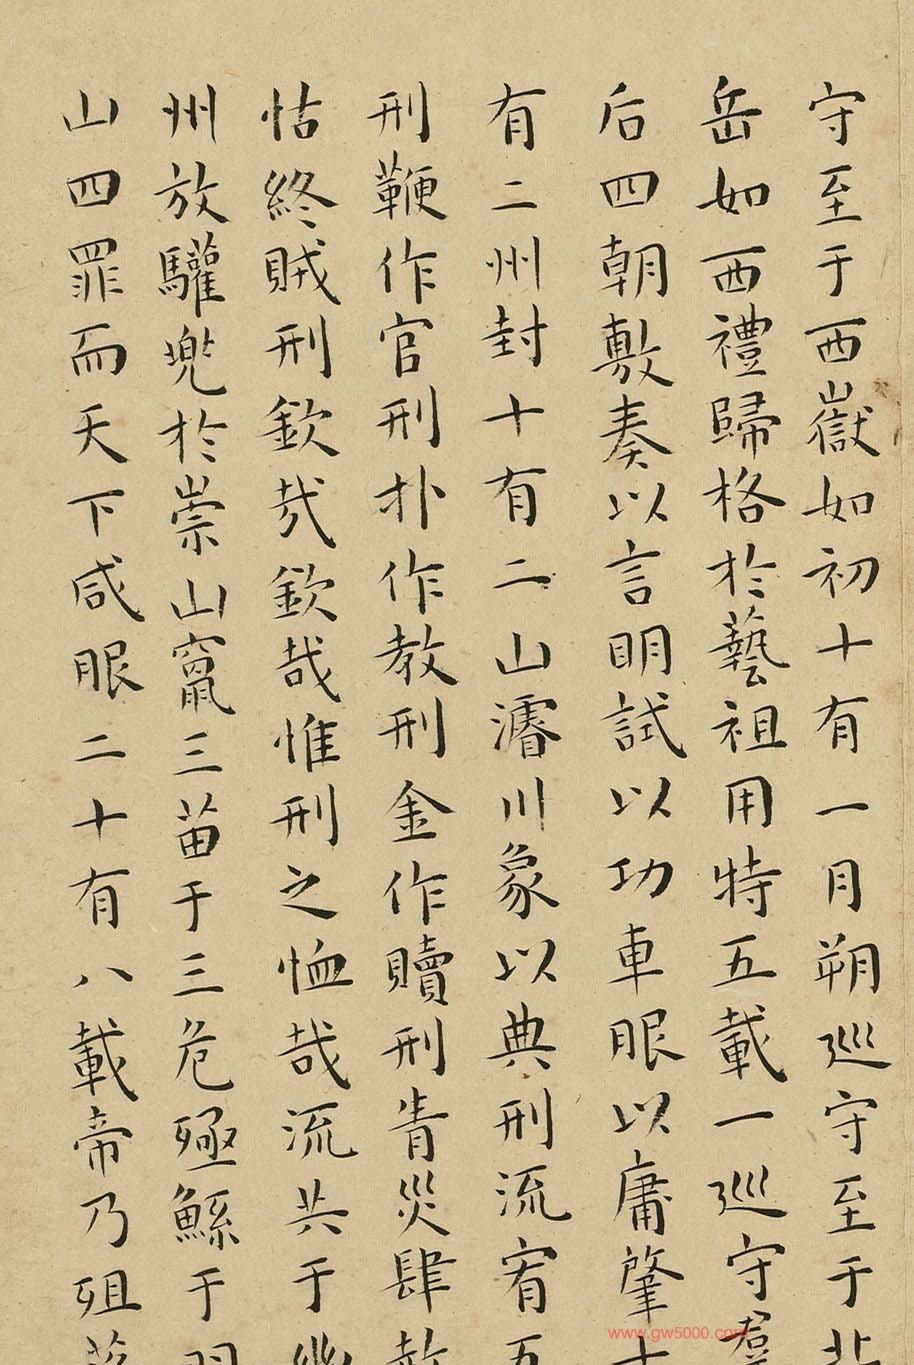 守至于西嶽如初十有一月朔巡守至于北
岳如西禮歸格於藝祖用特五載一巡守羣
后四朝敷奏以言明試以功車眼以庸肇十
有二州封十有二山濬川象以典刑流宥五
刑鞭作官刑扑作教刑金作贖刑眚災肆赦
怙終賊刑欽哉欽哉惟刑之恤哉流共于幽
州放驩兜於崇山竄三苗于三危殛鯀于羽
山四罪而天下咸眼二十有八載帝乃殂落
www.gw5000.com